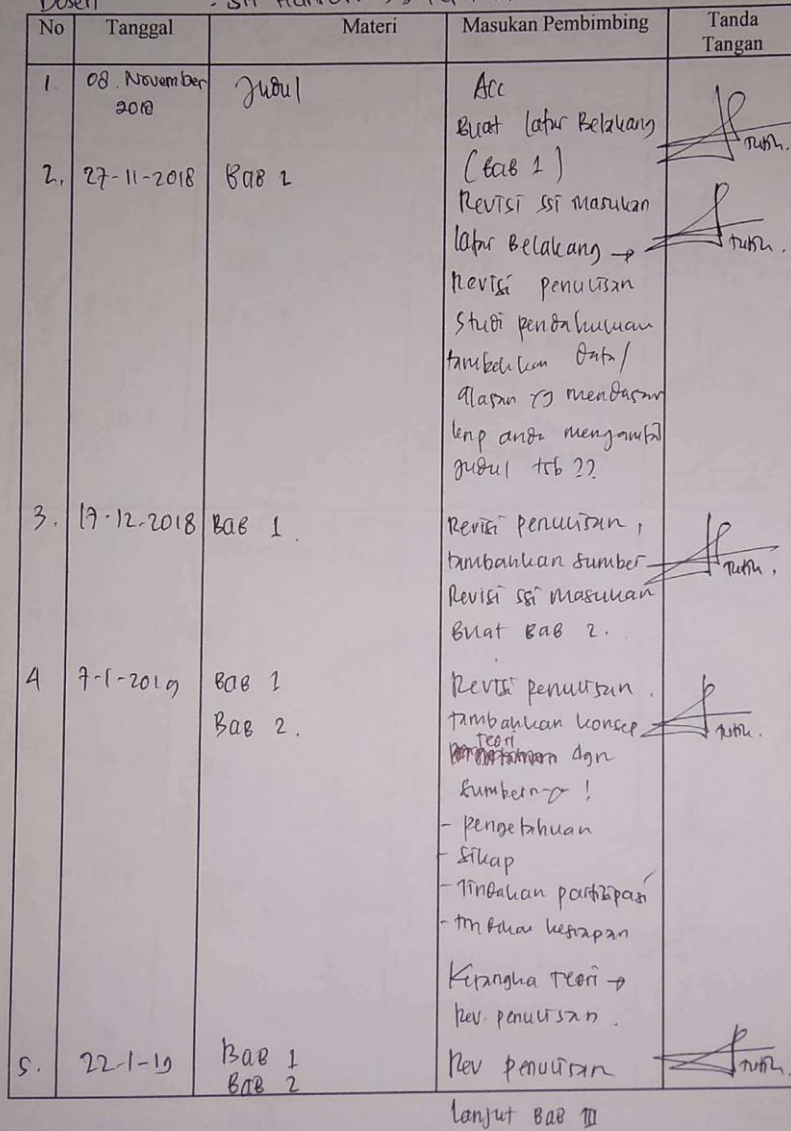 Dosen : Sri
No Tanggal Materi Masukan Pembimbing Tanda Tangan
1. 08. November 2018 Judul Acc
Buat latar Belakang
(Bab 1)
2. 27-11-2018 Bab 1
Revisi ssi masukan
latar Belakang →
Revisi penulisan
Studi pendahuluan
tambahkan data/
alasan yg mendasari
knp anda mengambil
judul tsb ??
3. 19-12-2018 Bab 1. Revisi penulisan,
tambahkan sumber
Revisi ssi masukan
Buat Bab 2.
4 7-1-2019 Bab 1 Revisi penulisan.
Bab 2. tambahkan konsep
teori dgn
sumbernya !
- pengetahuan
- sikap
- Tindakan partisipasi
- tindakan kesiapan
Kerangka Teori →
Rev. penulisan.
5. 22-1-19 Bab 1 Rev penulisan
Bab 2
lanjut Bab III